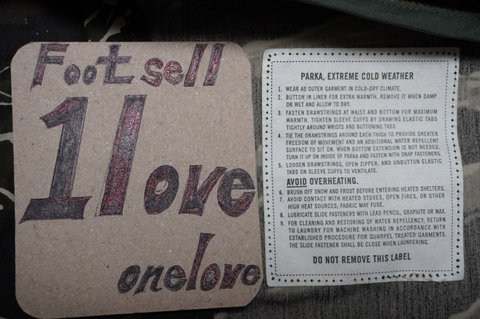 Footsell
1love
onelove
PARKA, EXTREME COLD WEATHER
1. WEAR AS OUTER GARMENT IN COLD-DRY CLIMATE.
2. BUTTON IN LINER FOR EXTRA WARMTH, REMOVE IT WHEN DAMP
OR WET AND ALLOW TO DRY.
3. FASTEN DRAWSTRINGS AT WAIST AND BOTTOM FOR MAXIMUM
WARMTH. TIGHTEN SLEEVE CUFFS BY DRAWING ELASTIC TABS
TIGHTLY AROUND WRISTS AND BUTTONING TABS.
4. TIE THE DRAWSTRINGS AROUND EACH THIGH TO PROVIDE GREATER
FREEDOM OF MOVEMENT AND AN ADDITIONAL WATER REPELLENT
SURFACE TO SIT ON. WHEN BOTTOM EXTENSION IS NOT NEEDED,
TURN IT UP ON INSIDE OF PARKA AND FASTEN WITH SNAP FASTENERS.
5. LOOSEN DRAWSTRINGS, OPEN ZIPPER, AND UNBUTTON ELASTIC
TABS ON SLEEVE CUFFS TO VENTILATE.
AVOID OVERHEATING.
6. BRUSH OFF SNOW AND FROST BEFORE ENTERING HEATED SHELTERS.
7. AVOID CONTACT WITH HEATED STOVES, OPEN FIRES, OR OTHER
HIGH HEAT SOURCES, FABRIC MAY FUSE.
8. LUBRICATE SLIDE FASTENERS WITH LEAD PENCIL, GRAPHITE OR WAX.
9. FOR CLEANING AND RESTORING OF WATER REPELLENCY, RETURN
TO LAUNDRY FOR MACHINE WASHING IN ACCORDANCE WITH
ESTABLISHED PROCEDURE FOR QUARPEL TREATED GARMENTS.
THE SLIDE FASTENER SHALL BE CLOSE WHEN LAUNDERING.
DO NOT REMOVE THIS LABEL